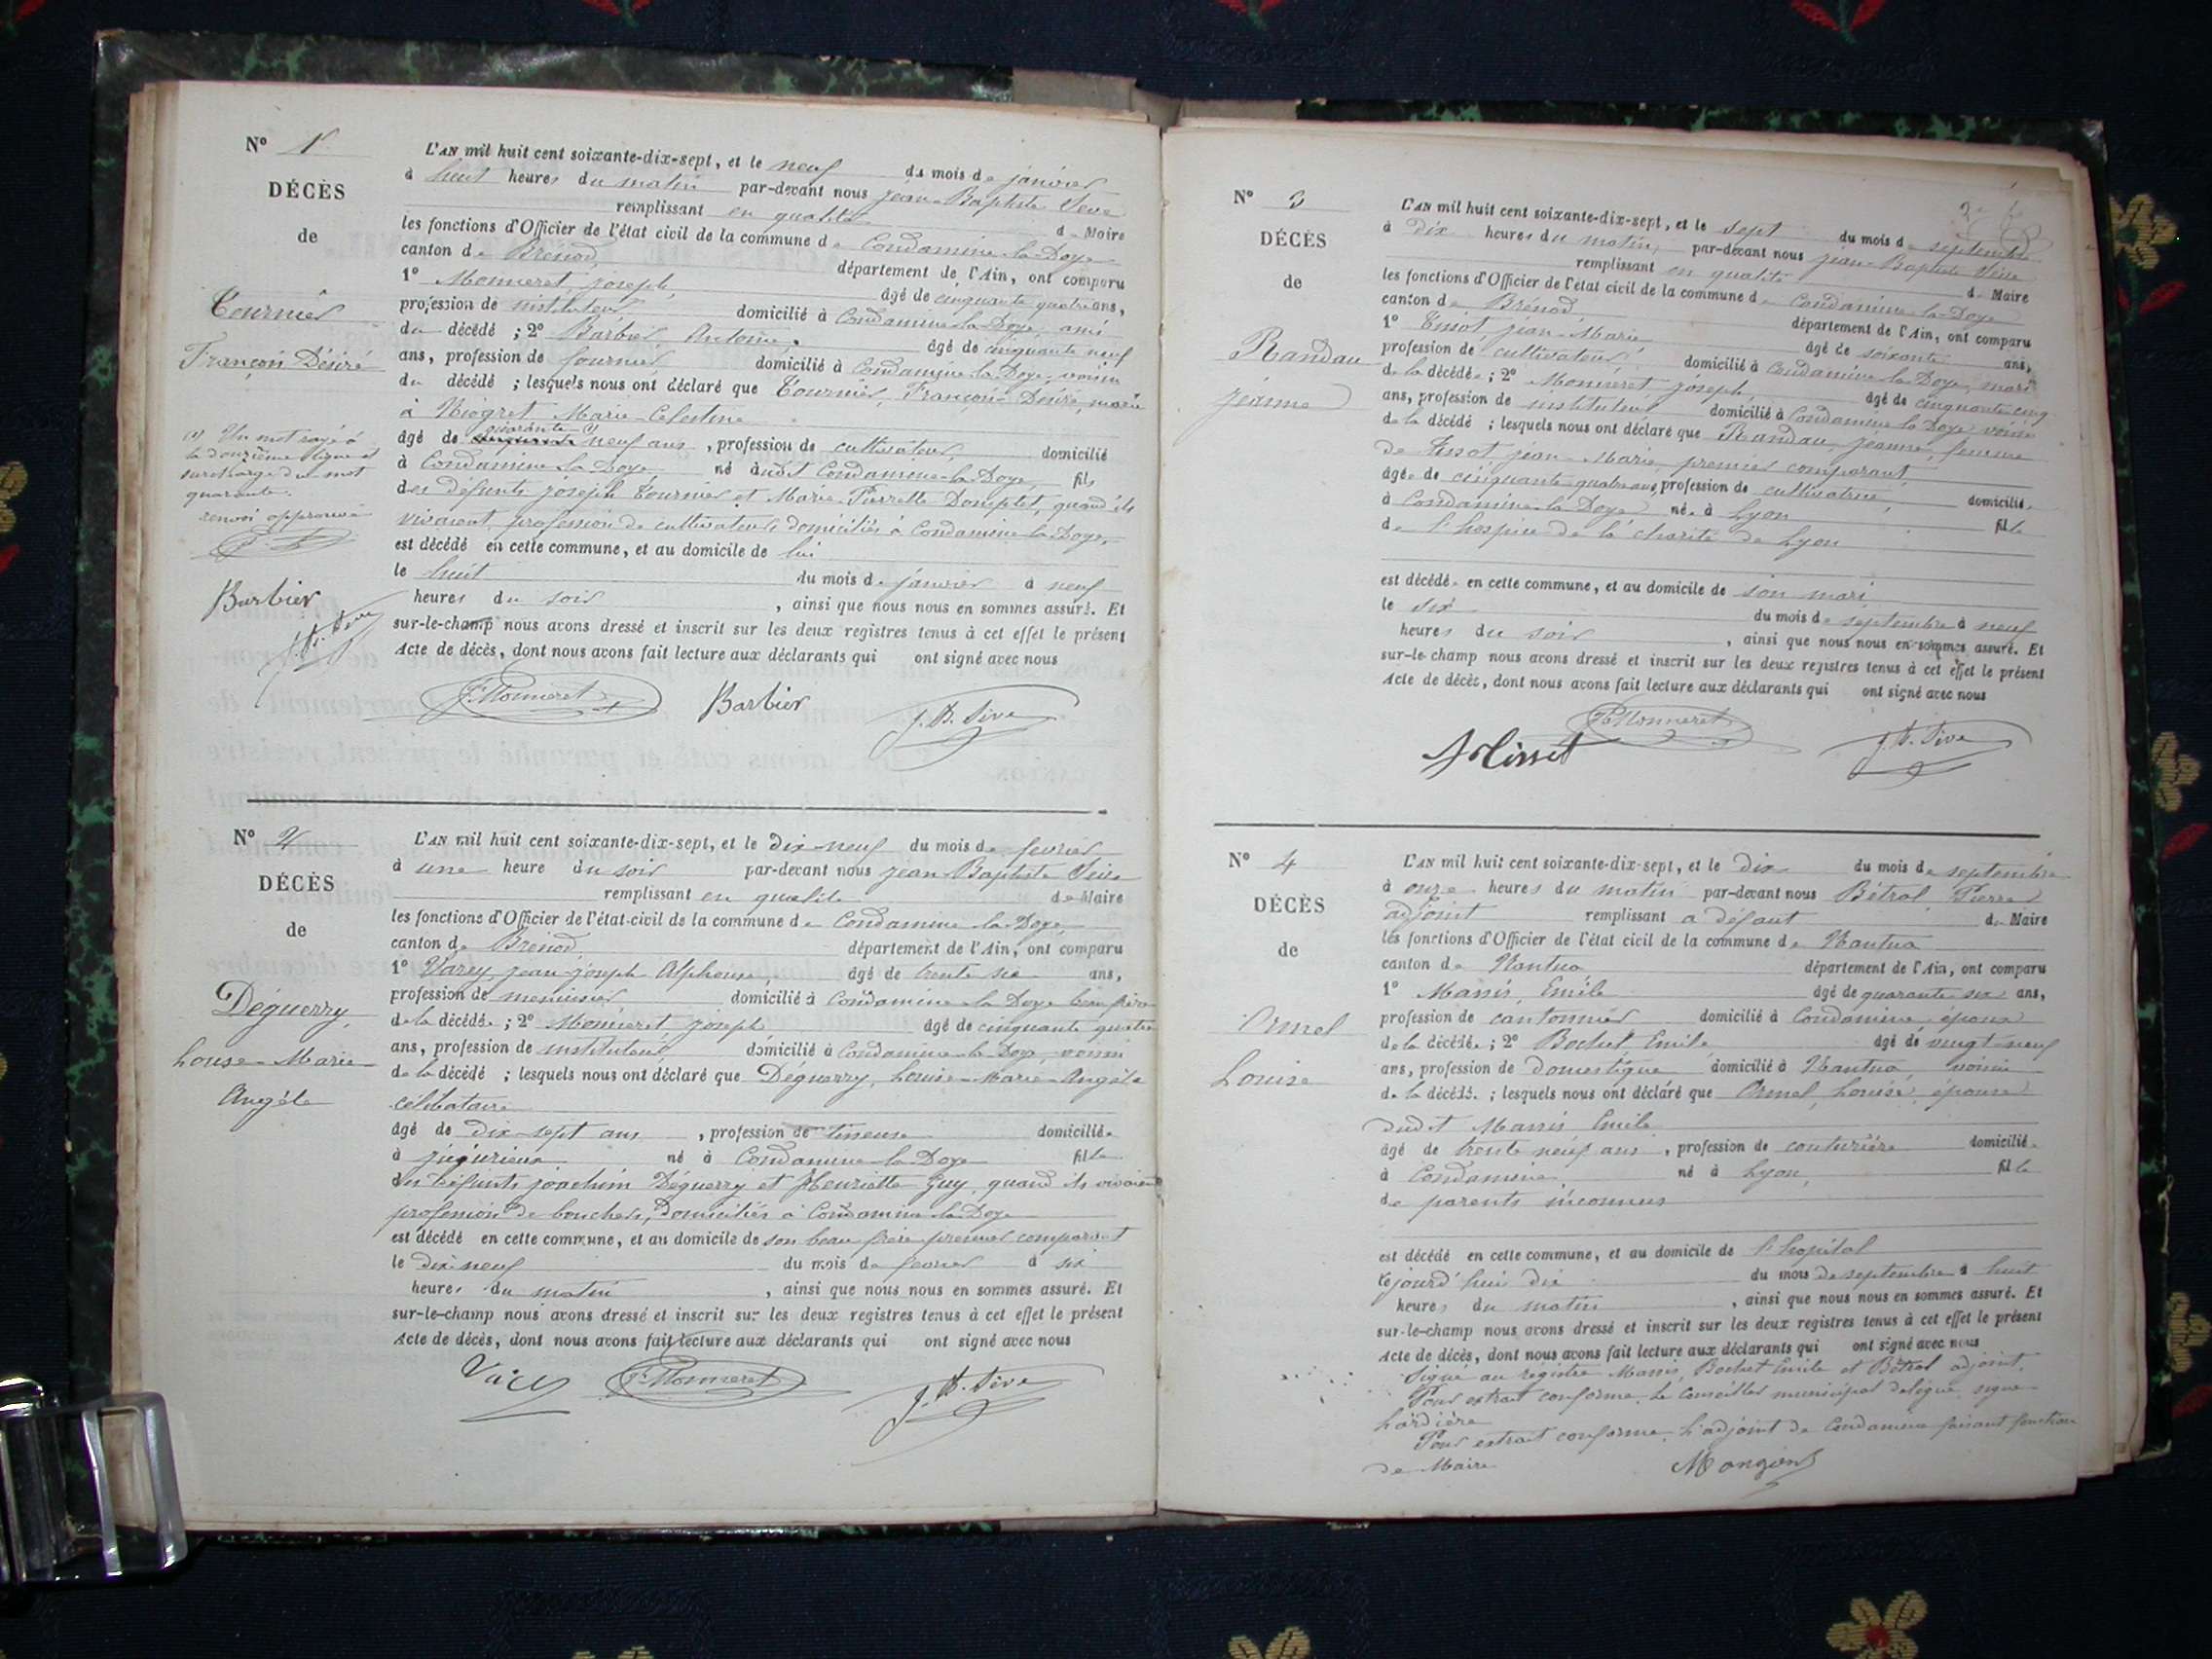 N° 1
DÉCÈS
de
Tournier
François Désiré
(1) Un mot rayé à
la douzième ligne et
surcharge du mot
quarante.
renvoi approuvé
Barbier
J. B. Sève
L'AN mil huit cent soixante-dix-sept, et le neuf du mois de janvier
à huit heures du matin par-devant nous jean-Baptiste Sève
remplissant en qualité de Maire
les fonctions d'Officier de l'état civil de la commune de Condamine-la-Doye
canton de Brénod département de l'Ain, ont comparu
1° Monneret, joseph, âgé de cinquante quatre ans,
profession de instituteur domicilié à Condamine-la-Doye, ami
du décédé ; 2° Barbier, Antoine. âgé de cinquante neuf
ans, profession de domicilié à Condamine-la-Doye, voisin
du décédé ; lesquels nous ont déclaré que Tournier, François Désiré, marié
à Niogret, Marie-Célestine
quarante (1)
âgé de neuf ans, profession de cultivateur, domicilié
à Condamine-la-Doye né audit Condamine-la-Doye, fils
des défunts joseph Tournier et Marie-Pierrette Domplet, quand ils
vivaient, profession de cultivateurs domiciliés à Condamine-la-Doye,
est décédé en cette commune, et au domicile de lui
le huit du mois de janvier à neuf
heures du soir, ainsi que nous nous en sommes assuré. Et
sur-le-champ nous avons dressé et inscrit sur les deux registres tenus à cet effet le présent
Acte de décès, dont nous avons fait lecture aux déclarants qui ont signé avec nous
J. Monneret Barbier J. B. Sève
N° 2
DÉCÈS
de
Déguerry,
Louise-Marie
Angèle
L'AN mil huit cent soixante-dix-sept, et le dix-neuf du mois de février
à une heure du soir par-devant nous jean-Baptiste Sève
remplissant en qualité de Maire
les fonctions d'Officier de l'état-civil de la commune de Condamine-la-Doye
canton de Brénod, département de l'Ain, ont comparu
1° Varey, jean-joseph-Alphonse, âgé de trente six ans,
profession de menuisier domicilié à Condamine-la-Doye beau frère
de la décédée ; 2° Monneret, joseph, âgé de cinquante quatre
ans, profession de instituteur domicilié à Condamine-la-Doye, voisin
de la décédé ; lesquels nous ont déclaré que Déguerry, Louise-Marie-Angèle
célibataire
âgé de dix-sept ans, profession de tisseuse domiciliée
à jujurieux né à Condamine-la-Doye fille
des défunts joachim Déguerry et Henriette Guy, quand ils vivaient
profession de bouchers, domiciliés à Condamine-la-Doye
est décédé en cette commune, et au domicile de son beau frère premier comparant
le dix-neuf du mois de février à six
heures du matin, ainsi que nous nous en sommes assuré. Et
sur-le-champ nous avons dressé et inscrit sur les deux registres tenus à cet effet le présent
Acte de décès, dont nous avons fait lecture aux déclarants qui ont signé avec nous
Varey J. Monneret J. B. Sève
N° 3
DÉCÈS
de
Randau
jeanne
L'AN mil huit cent soixante-dix-sept, et le sept du mois de septembre
à dix heures du matin, par-devant nous jean-Baptiste Sève
remplissant en qualité de Maire
les fonctions d'Officier de l'état civil de la commune de Condamine-la-Doye
canton de Brénod département de l'Ain, ont comparu
1° Tissot jean-Marie âgé de soixante ans,
profession de cultivateur, domicilié à Condamine-la-Doye, mari
de la décédée ; 2° Monneret, joseph, âgé de cinquante-cinq
ans, profession de instituteur domicilié à Condamine-la-Doye voisin
de la décédé ; lesquels nous ont déclaré que Randau, jeanne, femme
de Tissot, jean-Marie, premier comparant
âgée de cinquante-quatre ans, profession de cultivatrice, domiciliée
à Condamine-la-Doye née à Lyon fille
de l'hospice de la charité de Lyon
est décédée en cette commune, et au domicile de son mari
le six du mois de septembre à neuf
heures du soir, ainsi que nous nous en sommes assuré. Et
sur-le-champ nous avons dressé et inscrit sur les deux registres tenus à cet effet le présent
Acte de décès, dont nous avons fait lecture aux déclarants qui ont signé avec nous
J. Monneret J. B. Sève
N° 4
DÉCÈS
de
Ormel
Louise
L'AN mil huit cent soixante-dix-sept, et le dix du mois de septembre
à onze heures du matin par-devant nous Bétral, Pierre
adjoint remplissant à défaut de Maire
les fonctions d'Officier de l'état civil de la commune de Nantua
canton de Nantua département de l'Ain, ont comparu
1° Massis, Emile âgé de quarante six ans,
profession de cantonnier domicilié à Condamine, époux
de la décédée ; 2° Bochet, Emile âgé de vingt-neuf
ans, profession de domestique domicilié à Nantua, voisin
de la décédée ; lesquels nous ont déclaré que Ormel, Louise, épouse
dudit Massis Emile
âgé de trente neuf ans, profession de couturière domiciliée
à Condamine, né à Lyon, fille
de parents inconnus
est décédé en cette commune, et au domicile de l'hôpital
cejourd'hui dix du mois de septembre à huit
heures du matin, ainsi que nous nous en sommes assuré. Et
sur-le-champ nous avons dressé et inscrit sur les deux registres tenus à cet effet le présent
Acte de décès, dont nous avons fait lecture aux déclarants qui ont signé avec nous
Signé au registre Massis, Bochet Emile et Bétral adjoint.
Pour extrait conforme. Le Conseiller municipal délégué signé
Lardière
Pour extrait conforme. L'adjoint de Condamine faisant fonction
de Maire Mangien